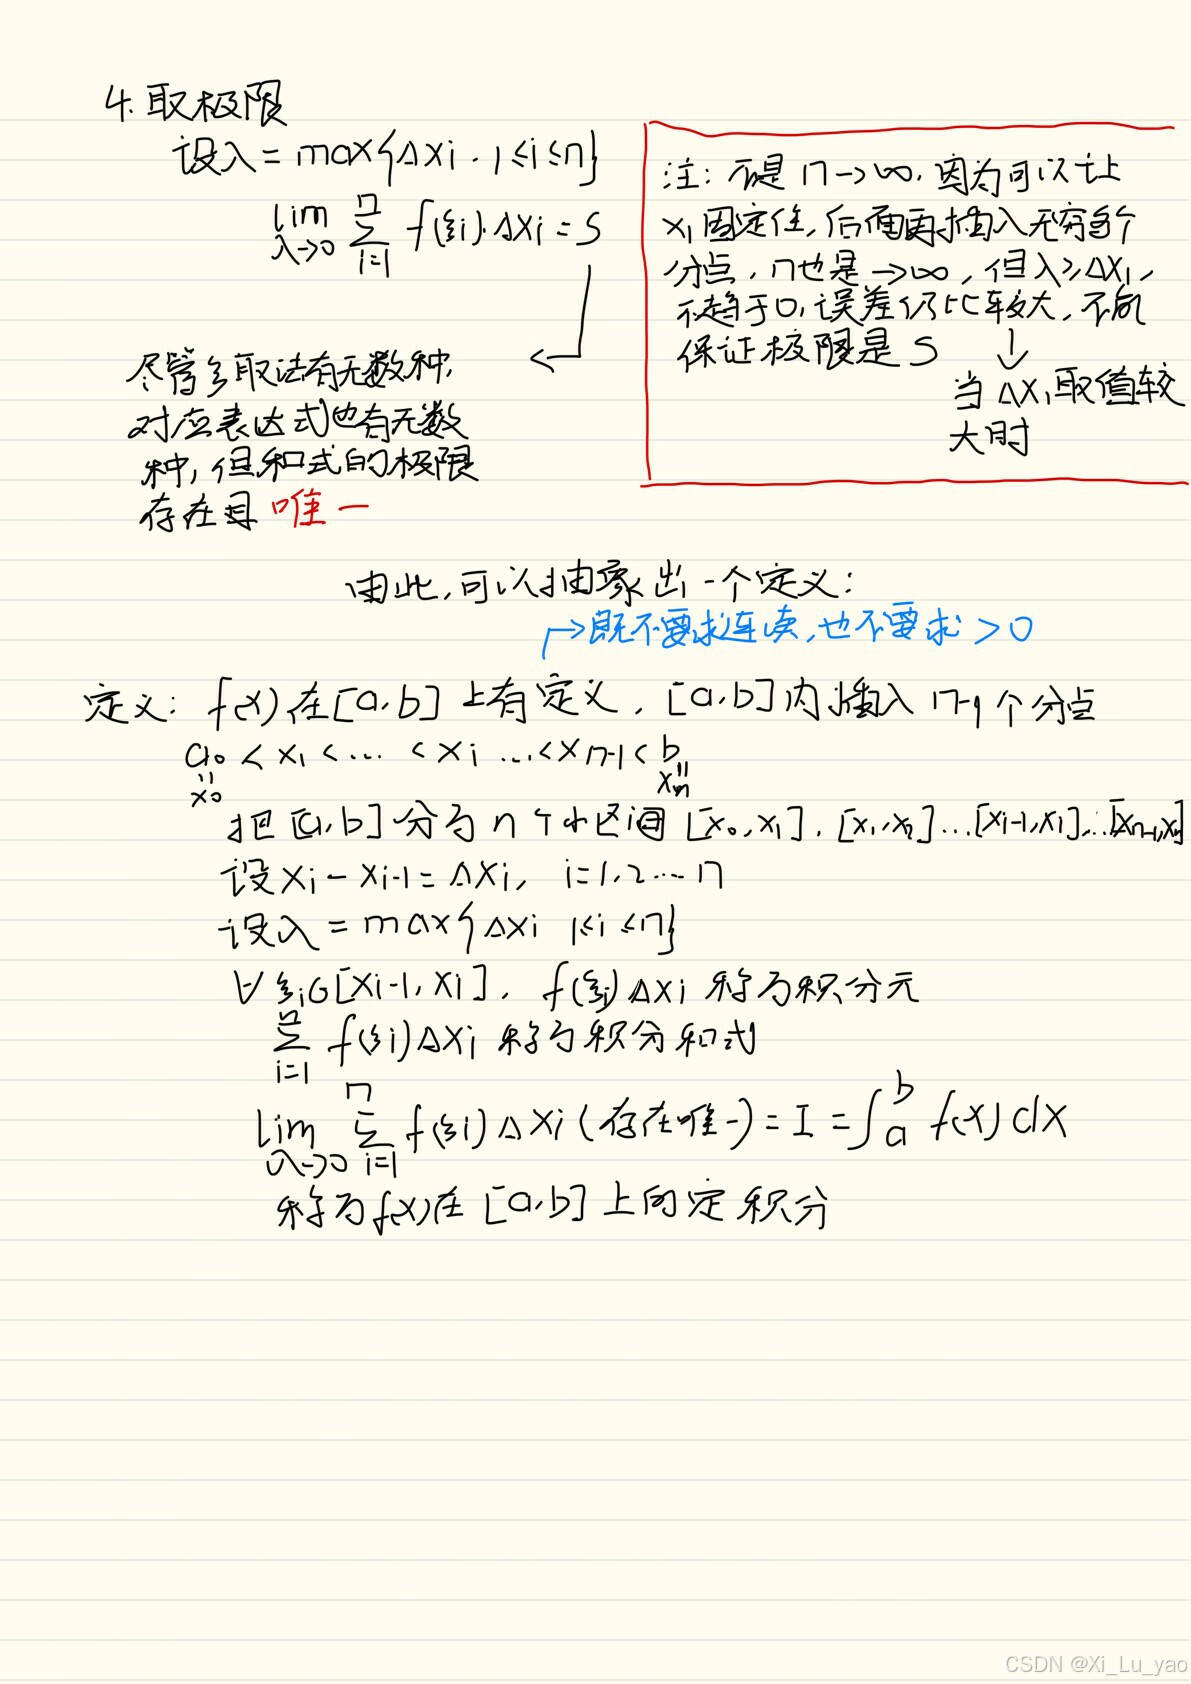 4. 取极限
设λ = max{Δxi . 1≤i≤n}
lim λ→0 n Σ i=1 f(ξi)·Δxi = S
注：不是 n→∞, 因为可以让
x1 固定住, 后面再插入无穷多个
分点, n也是→∞, 但λ≥Δx1,
不趋于0, 误差仍比较大, 不能
保证极限是 S
当 Δx1 取值较
大时
尽管ξ取法有无数种,
对应表达式也有无数
种, 但和式的极限
存在且 唯一
由此, 可以抽象出一个定义:
→既不要求连续, 也不要求 > 0
定义: f(x) 在 [a, b] 上有定义, [a, b] 内插入 n-1 个分点
a < x1 < ... < xi ... < xn-1 < b
x0 xn
把 [a, b] 分为 n 个小区间 [x0, x1], [x1, x2] ... [xi-1, xi], ... [xn-1, xn]
设 xi - xi-1 = Δxi, i=1, 2 ... n
设λ = max{Δxi 1≤i≤n}
∀ ξi∈[xi-1, xi], f(ξi) Δxi 称为积分元
n Σ i=1 f(ξi) Δxi 称为积分和式
lim λ→0 n Σ i=1 f(ξi) Δxi (存在唯一) = I = ∫ b a f(x) dx
称为 f(x) 在 [a, b] 上的定积分
CSDN @Xi_Lu_yao